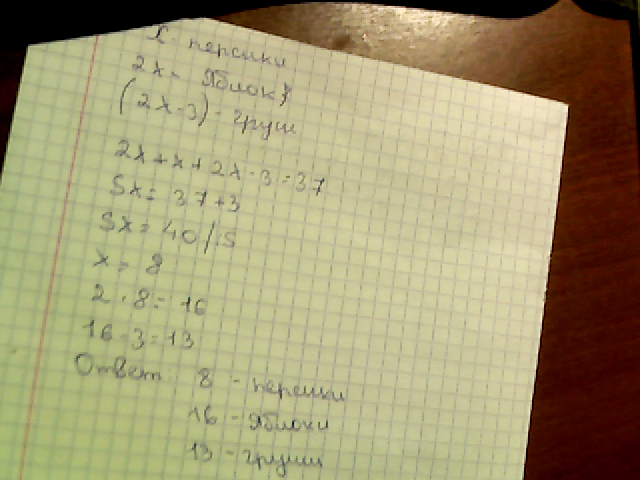 x - персики
2x - яблоки
(2x-3) - груши
2x+x+2x-3=37
5x=37+3
5x=40/:5
x=8
2·8=16
16-3=13
Ответ: 8 - персики
16 - яблоки
13 - груши